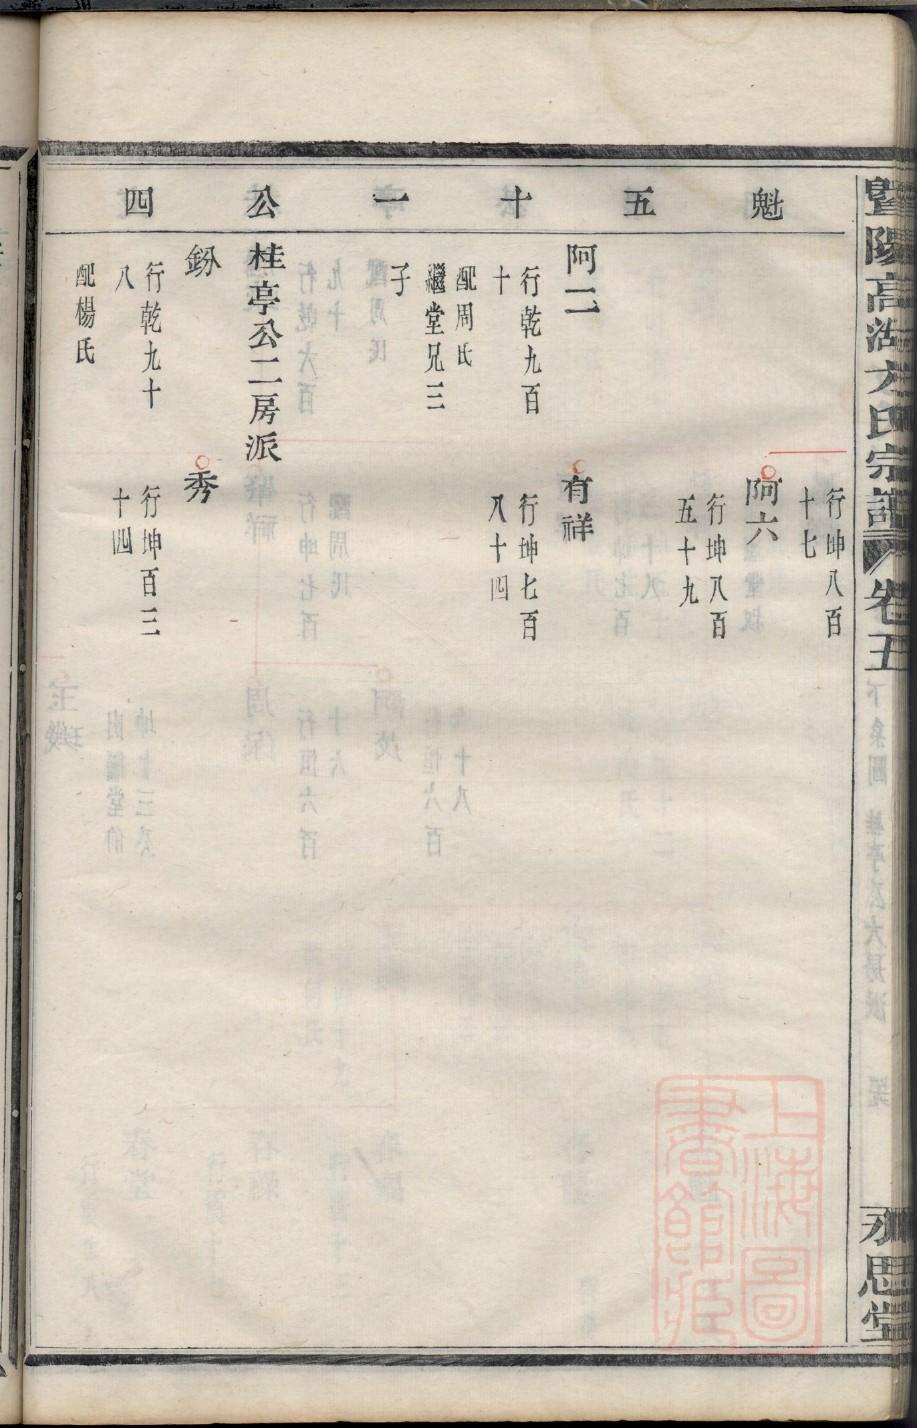 暨陽高湖方氏宗譜 卷五
永思堂
魁五十一公四
行坤八百
十七
阿六
行坤八百
五十九
阿二
行乾九百
十
配周氏
繼堂兄三
子
有祥
行坤七百
八十四
桂亭公二房派
釖
行乾九十
八
配楊氏
秀
行坤百三
十四
上海圖
書館藏